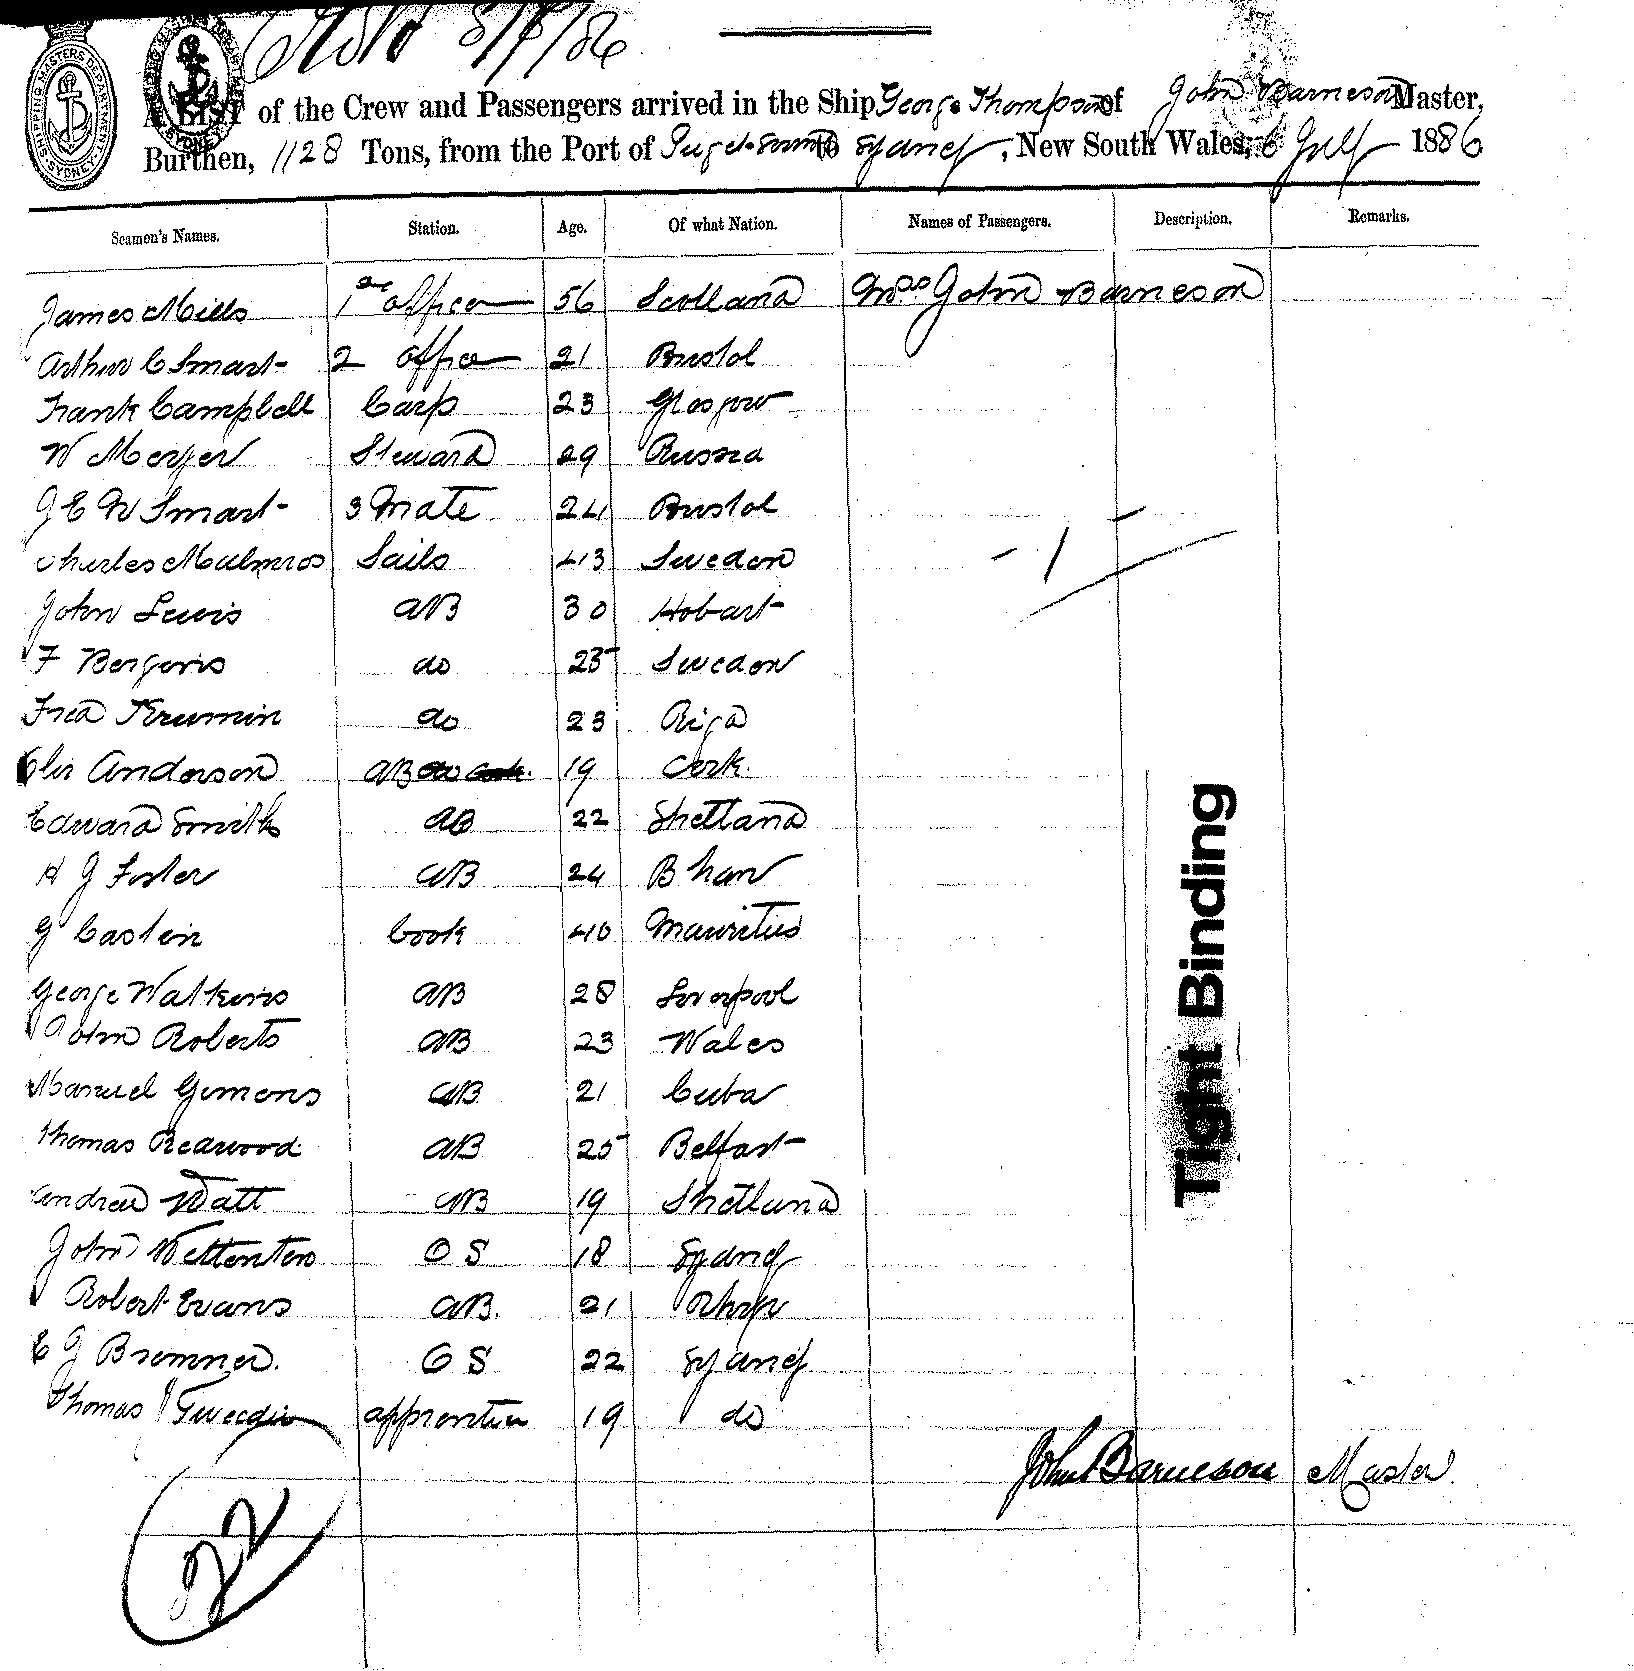 8/7/86
A LIST of the Crew and Passengers arrived in the Ship George Thompson of John Barneson Master,
Burthen, 1128 Tons, from the Port of Puget Sound to Sydney, New South Wales, 6 July 1886
SHIPPING MASTERS DEPARTMENT SYDNEY
Seamen's Names. Station. Age. Of what Nation. Names of Passengers. Description. Remarks.
James Mills 1st officer 56 Scotland Mrs John Barneson
Arthur C Smart 2 officer 21 Bristol
Frank Campbell Carp 23 Glasgow
W Meyer Steward 29 Russia
J E W Smart 3 Mate 24 Bristol
Charles Malmros Sails 43 Sweden
- 1 -
John Lewis AB 30 Hobart
F Bergoris do 25 Sweden
Fred Krumin do 23 Riga
Anderson AB do cook. 19 Cork.
Edward Smith AB 22 Shetland
H J Foster AB 24 B han
G Castein Cook 40 Mauritius
George Watkins AB 28 Liverpool
John Roberts AB 23 Wales
Manuel Gomons AB 21 Cuba
Thomas Redwood AB 25 Belfast
Andrew Watt AB 19 Shetland
John Wettenton OS 18 Sydney
Robert Evans AB. 21 Rhyl
E J Bremner. OS 22 Sydney
Thomas J Tweedie apprentice 19 do
John Barneson Master
22
Tight Binding